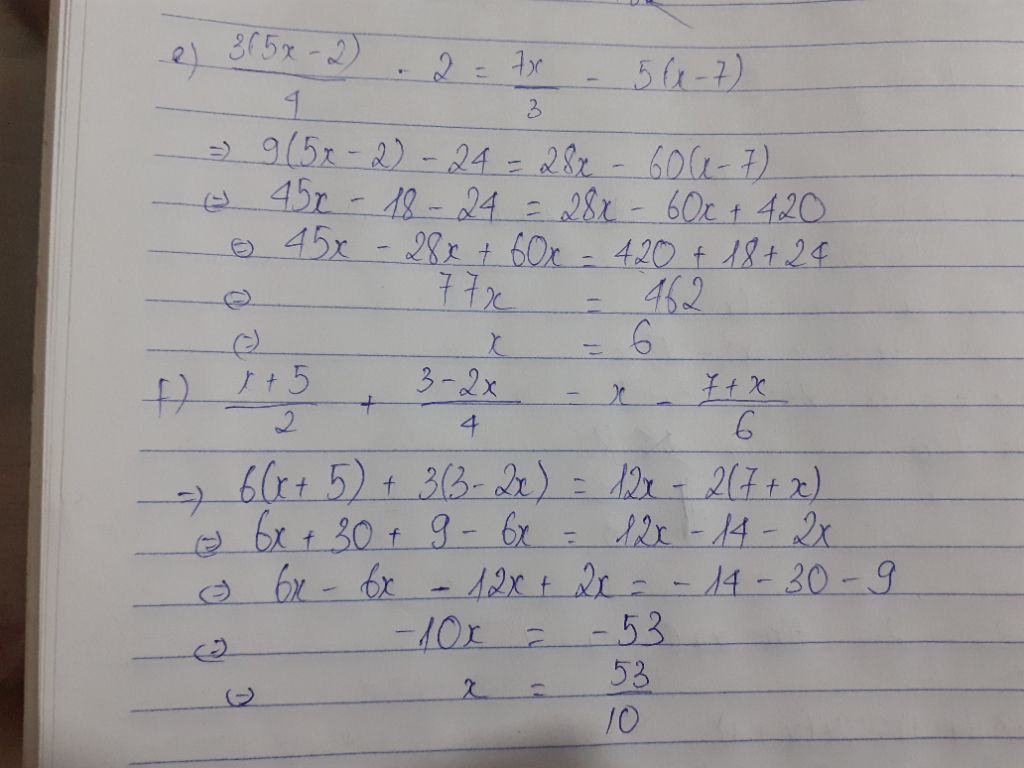 e) 3(5x - 2)/4 - 2 = 7x/3 - 5(x-7)
=> 9(5x - 2) - 24 = 28x - 60(x-7)
<=> 45x - 18 - 24 = 28x - 60x + 420
<=> 45x - 28x + 60x = 420 + 18 + 24
<=> 77x = 462
<=> x = 6
f) x + 5/2 + 3 - 2x/4 = x - 7 + x/6
=> 6(x + 5) + 3(3 - 2x) = 12x - 2(7 + x)
<=> 6x + 30 + 9 - 6x = 12x - 14 - 2x
<=> 6x - 6x - 12x + 2x = -14 - 30 - 9
<=> -10x = -53
<=> x = 53/10